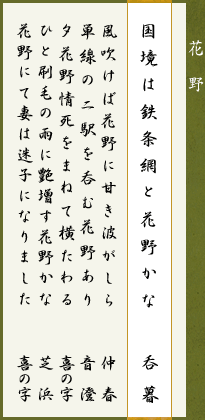 花野
国境は鉄条網と花野かな 呑暮
風吹けば花野に甘き波がしら 仲春
単線の二駅を呑む花野あり 音澄
夕花野情死をまねて横たわる 喜の字
ひと刷毛の雨に艶増す花野かな 芝浜
花野にて妻は迷子になりました 喜の字